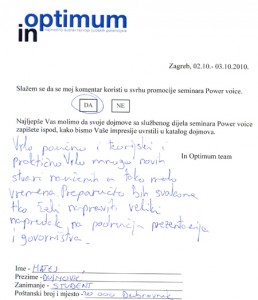 optimum
in
Zagreb, 02.10.- 03.10.2010.
Slažem se da se moj komentar koristi u svrhu promocije seminara Power voice.
DA NE
Najljepše Vas molimo da svoje dojmove sa službenog dijela seminara Power voice
zapišete ispod, kako bismo Vaše impresije uvrstili u katalog dojmova.
In Optimum team
Vrlo poučno i teorijski i
praktično. Vrlo mnogo novih
stvari naučenih u tako malo
vremena. Preporučio bih svakome
tko želi napraviti veliki
napredak na području prezentacija
i govorništva.
Ime - MATEJ
Prezime -
Zanimanje - STUDENT
Poštanski broj i mjesto - 20 000 Dubrovnik